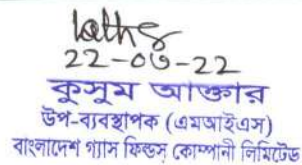 22-06-22
কুসুম আক্তার
উপ-ব্যবস্থাপক (এমআইএস)
বাংলাদেশ গ্যাস ফিল্ডস্ কোম্পানী লিমিটেড